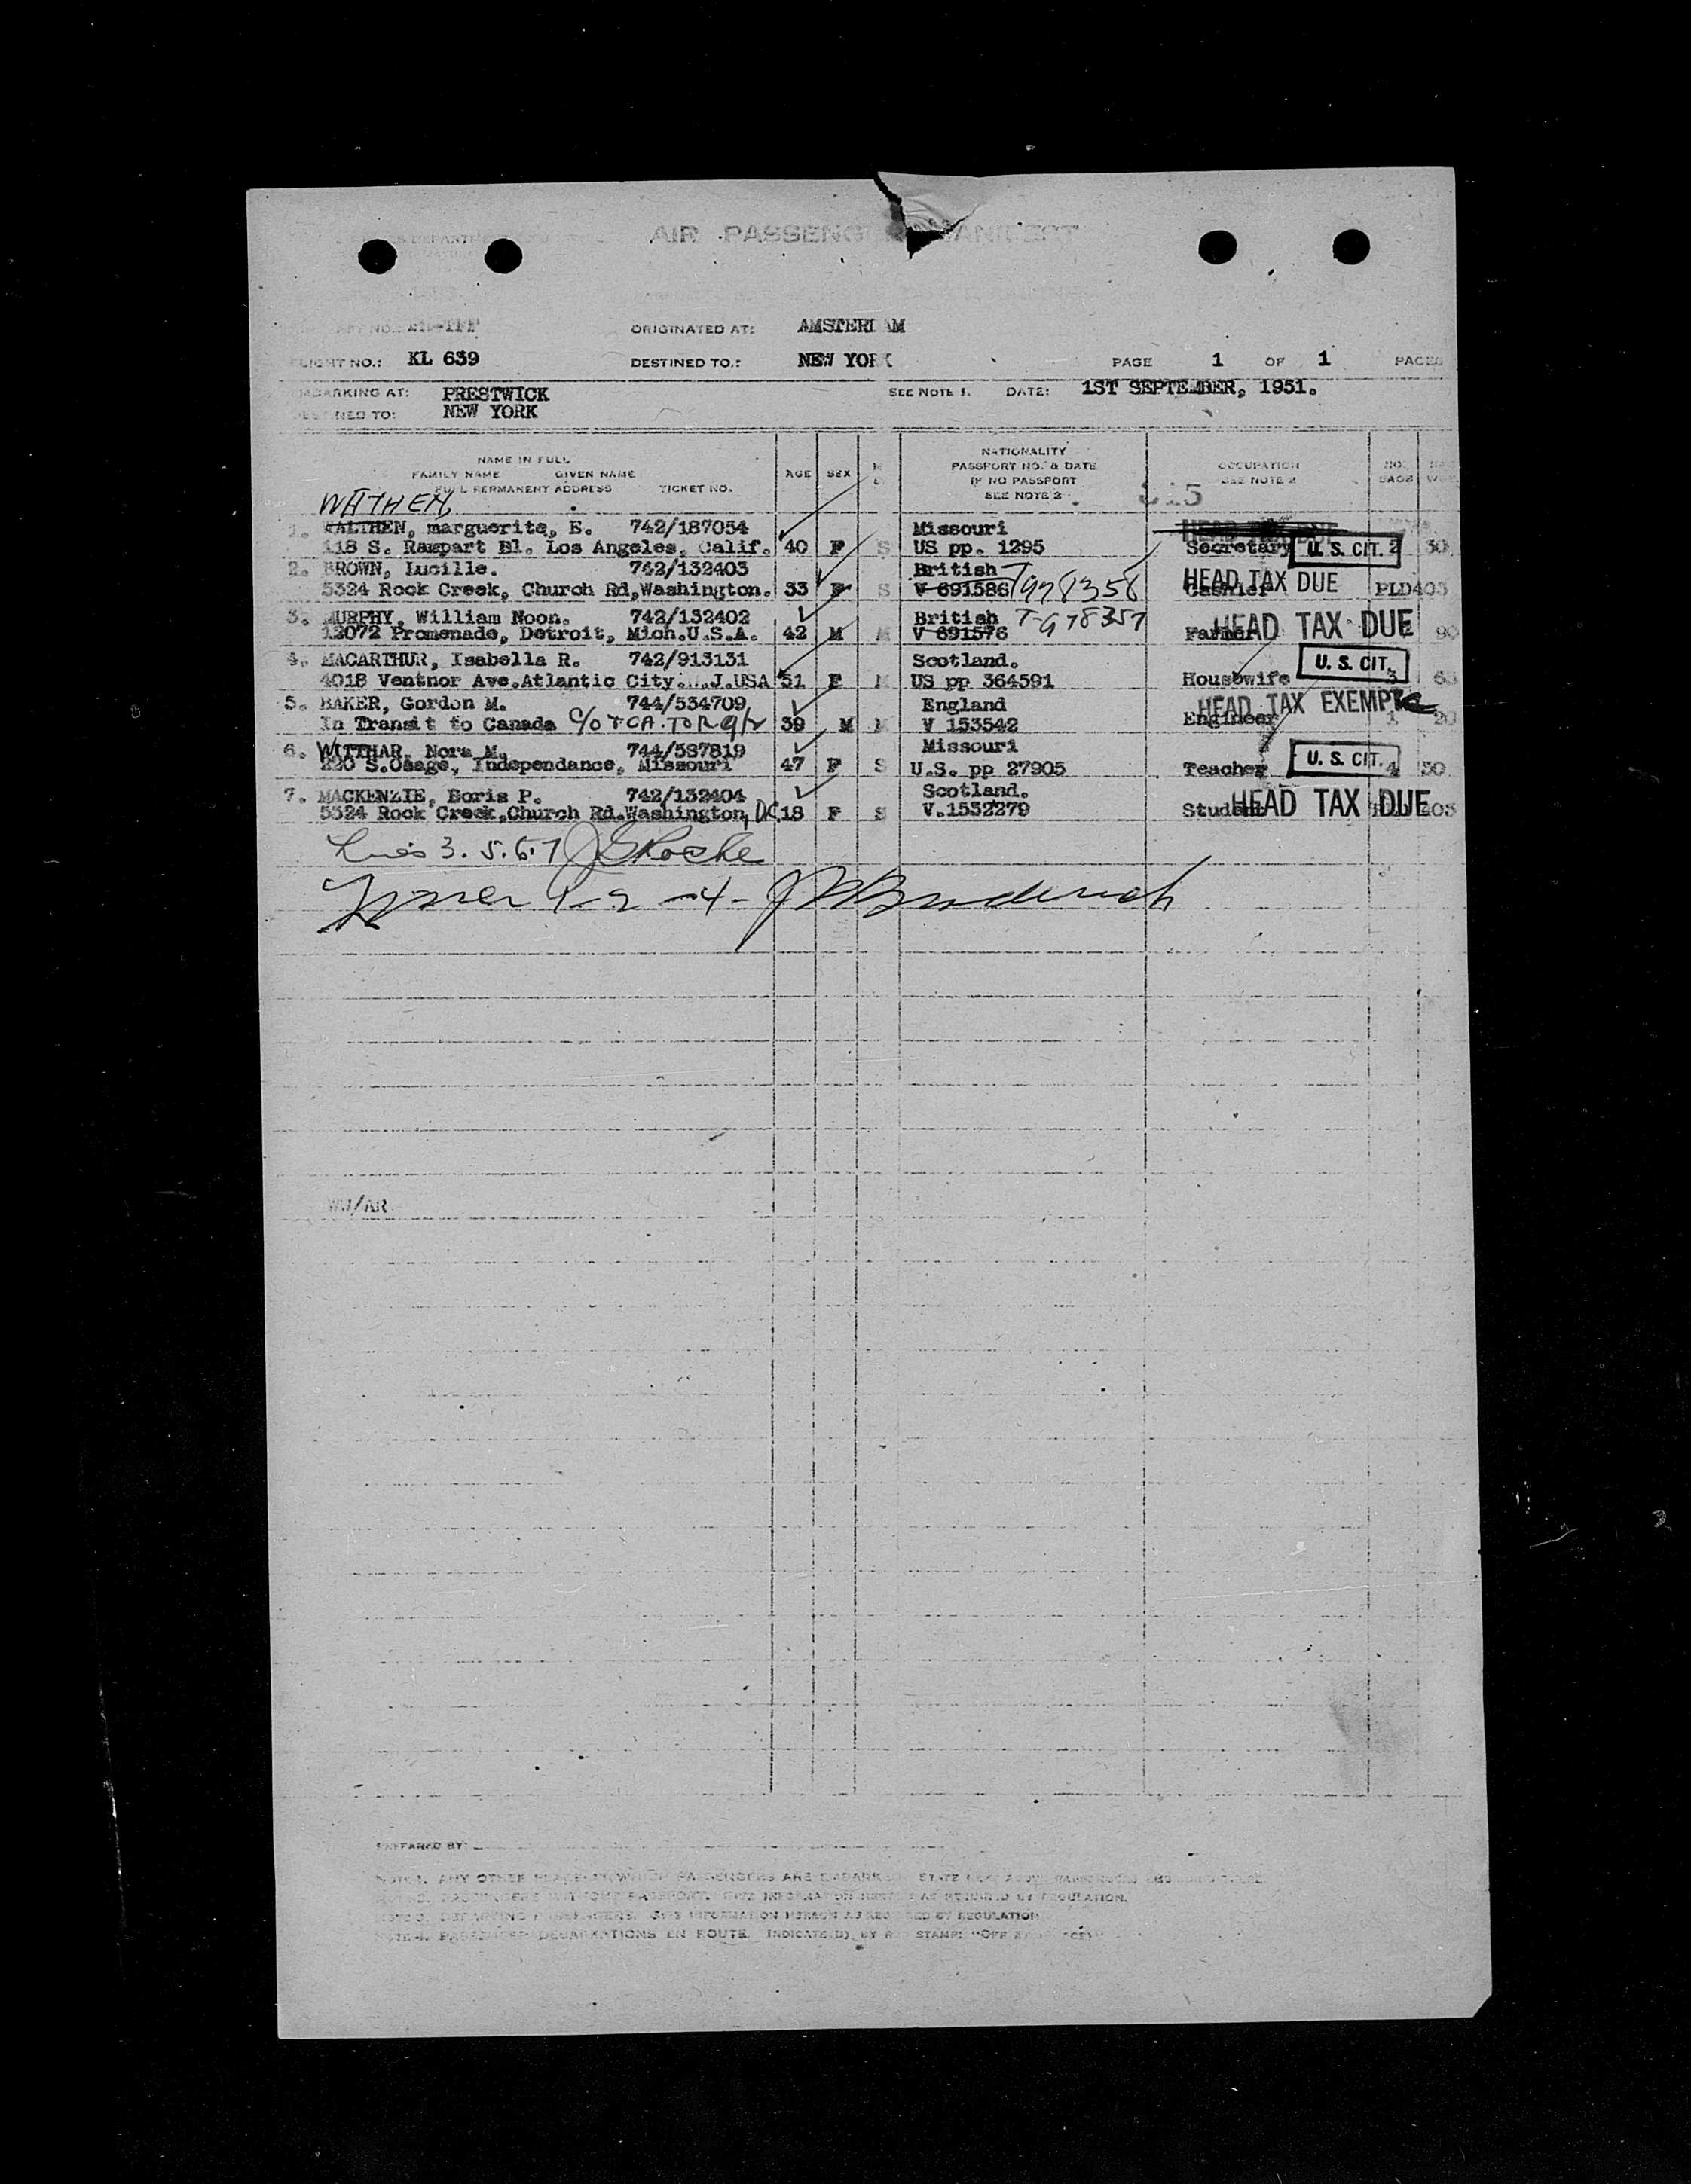 AIR PASSENG ANIFEST
ORIGINATED AT: AMSTERDAM
FLIGHT NO.: KL 639 DESTINED TO.: NEW YORK PAGE 1 OF 1 PAGES
EMBARKING AT: PRESTWICK SEE NOTE 1. DATE: 1ST SEPTEMBER, 1951.
DESTINED TO: NEW YORK
NAME IN FULL
FAMILY NAME GIVEN NAME
FULL PERMANENT ADDRESS TICKET NO.
AGE SEX
NATIONALITY
PASSPORT NO. & DATE
IF NO PASSPORT
SEE NOTE 2
OCCUPATION
SEE NOTE 2
WATHEN,
1. WALTHEN, marguerite, E. 742/187054 Missouri HEAD TAX DUE
118 S. Rampart Bl. Los Angeles, Calif. 40 F S US pp. 1295 Secretary U. S. CIT. 2 30
2. BROWN, Lucille. 742/132403 British T978358 HEAD TAX DUE
5324 Rock Creek, Church Rd,Washington. 33 F S V 691586 Cashier PLD403
3. MURPHY, William Noon. 742/132402 British T-978357 HEAD TAX DUE
12072 Promenade, Detroit, Mich.U.S.A. 42 M M V 691576 Farmer 90
4. MACARTHUR, Isabella R. 742/913131 Scotland. U. S. CIT.
4018 Ventnor Ave.Atlantic City.N.J.USA 51 F M US pp 364591 Housewife 3
5. BAKER, Gordon M. 744/534709 England HEAD TAX EXEMPT
In Transit to Canada C/O TCA. TOR 39 M M V 153542 Engineer 1 20
6. WITTHAR, Nora M. 744/587819 Missouri U. S. CIT.
220 S.Osage, Independance, Missouri 47 F S U.S. pp 27905 Teacher 4 30
7. MACKENZIE, Boris P. 742/132404 Scotland. HEAD TAX DUE
5324 Rock Creek,Church Rd.Washington, DC 18 F S V.1532279 Student
3. 5. 6. 7 Roche
1-2-4-
WW/AR
PREPARED BY:
NOTE 1. ANY OTHER PLACE AT WHICH PASSENGERS ARE EMBARK
NOTE 2. PASSENGERS WITHOUT PASSPORT. GIVE INFORMATION AS REQUIRED BY REGULATION.
NOTE 3. DEPARTING PASSENGERS. GIVE INFORMATION HEREON AS REQ ED BY REGULATION
NOTE 4. PASSENGER DEBARKATIONS EN ROUTE. INDICATE(D) BY R STAMP: "OFF